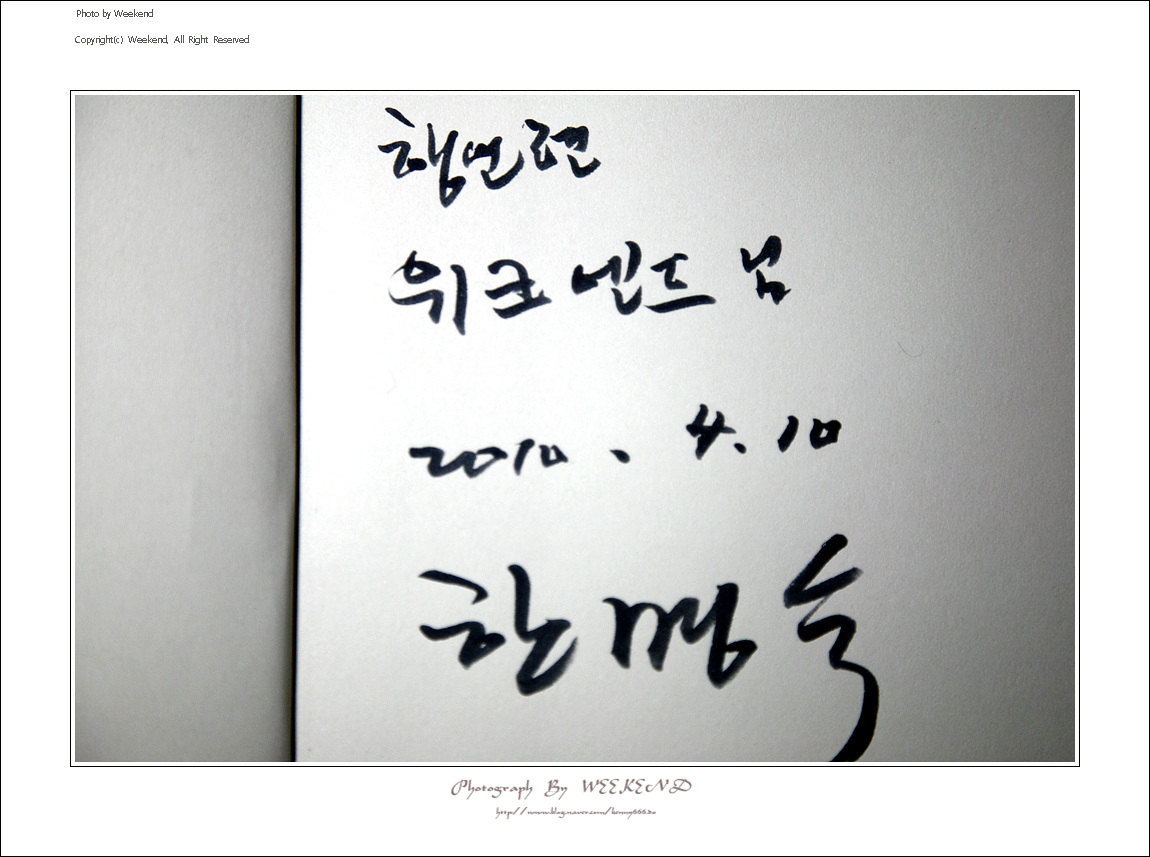 Photo by Weekend
Copyright(c) Weekend, All Right Reserved
행연련
위크엔드 님
2010. 4. 10
한명숙
Photograph By WEEKEND